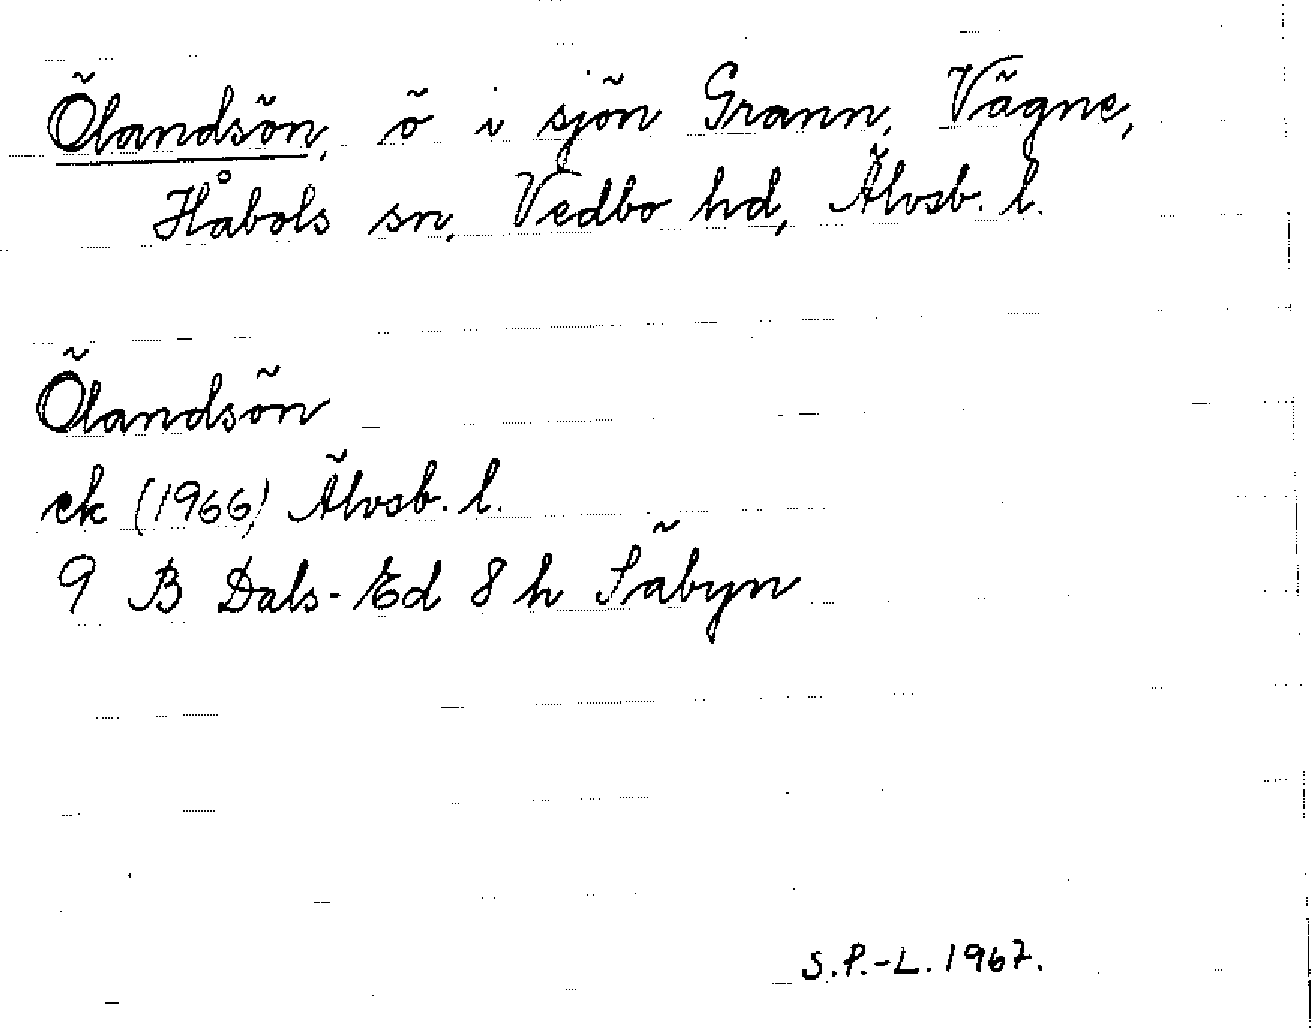 Ölandsön, ö i sjön Grann, Vägne,
Håbols sn, Vedbo hd, Älvsb. l.
Ölandsön
ek (1966) Älvsb. l.
9 B Dals-Ed 8 h Säbyn
S.P.-L. 1967.